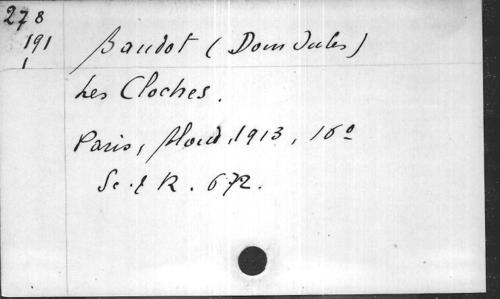 278
191
1
Baudot (Dom Jules)
Les Cloches.
Paris, Bloud, 1913, 16º
Sc. & R. 672.